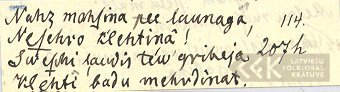 Nahz mahsina pee launaga, 114.
Neſehro klehtinâ!
Sweſchi laudis tew gribeja 207h
Klehtî badu mehrdinat.
LFK LATVIEŠU FOLKLORAS KRĀTUVE